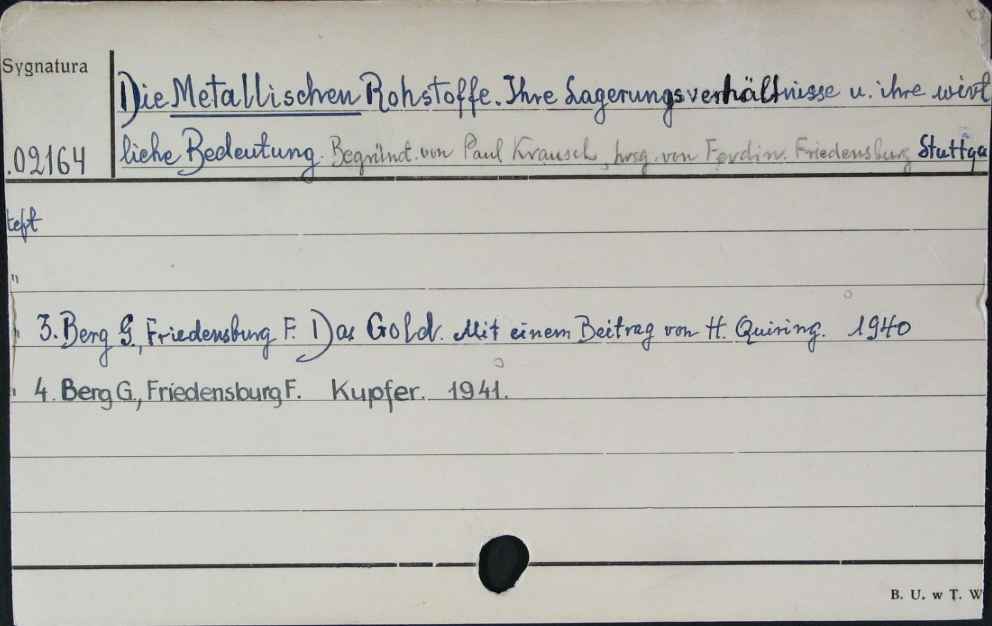 Sygnatura
Die Metallischen Rohstoffe. Ihre Lagerungsverhältnisse u. ihre wirt
.02164
liche Bedeutung. Begründ. von Paul Krausch, hrsg. von Ferdin. Friedensburg Stuttga
Heft
"
" 3. Berg G., Friedensburg F. Das Gold. Mit einem Beitrag von H. Quiring. 1940
" 4. Berg G., Friedensburg F. Kupfer. 1941.
B. U. w T. W